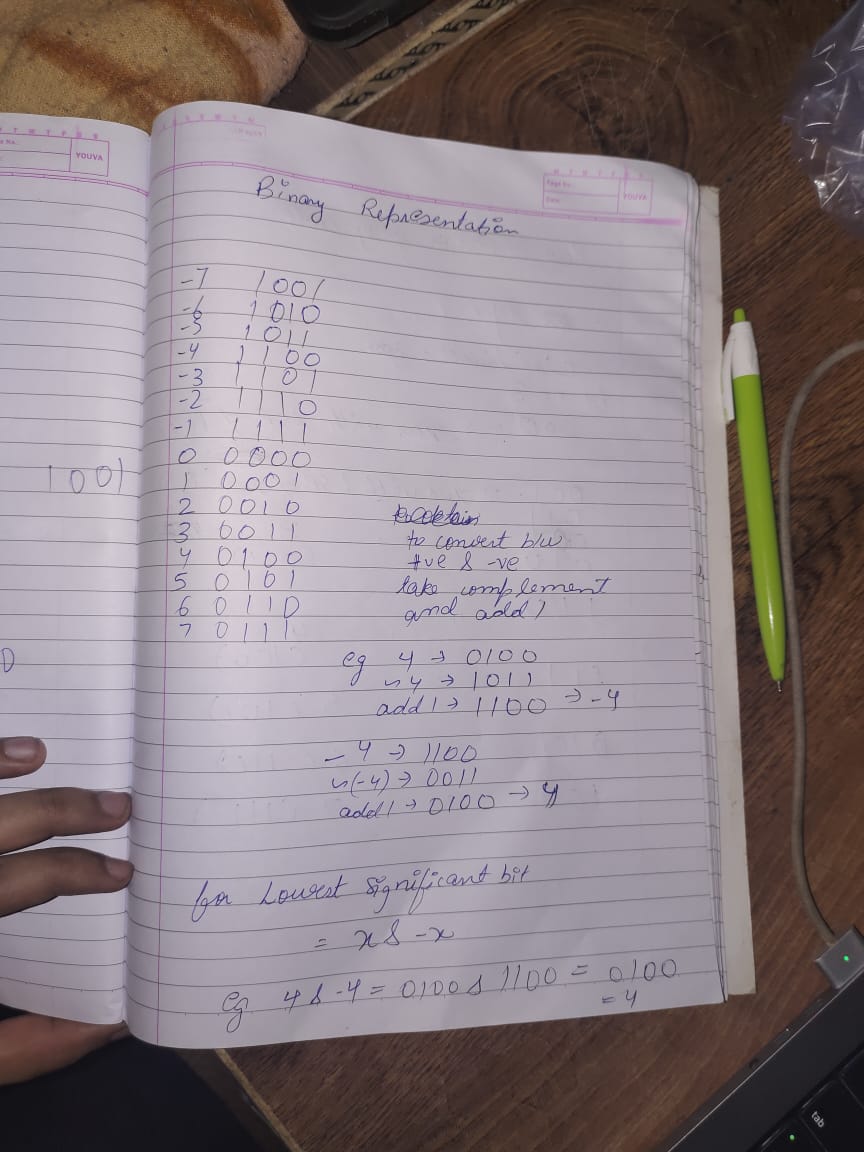 YOUVA
1001
YOUVA
Binary Representation
-7 1001
-6 1010
-5 1011
-4 1100
-3 1101
-2 1110
-1 1111
0 0000
1 0001
2 0010
3 0011
4 0100
5 0101
6 0110
7 0111
to convert b/w
+ve & -ve
take complement
and add 1
eg 4 → 0100
~4 → 1011
add 1 → 1100 → -4
-4 → 1100
~(-4) → 0011
add 1 → 0100 → 4
for Lowest significant bit
= x & -x
eg 4 & -4 = 0100 & 1100 = 0100
= 4
tab